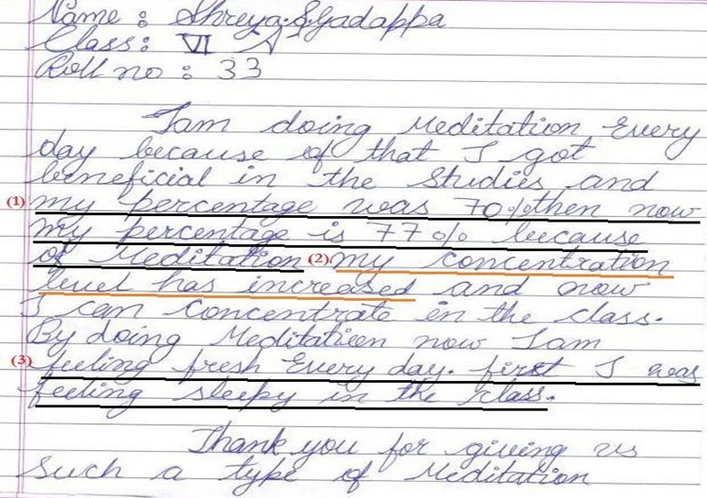 Name : Shreya.S.Gadappa
Class : VI A
Roll no : 33
I am doing Meditation Every
day because of that I got
beneficial in the studies and
(1) my percentage was 70% then now
my percentage is 77% because
of Meditation (2) my concentration
level has increased and now
I can concentrate in the class.
By doing Meditation now I am
(3) feeling fresh Every day. first I was
feeling sleepy in the class.
Thank you for giving us
such a type of Meditation